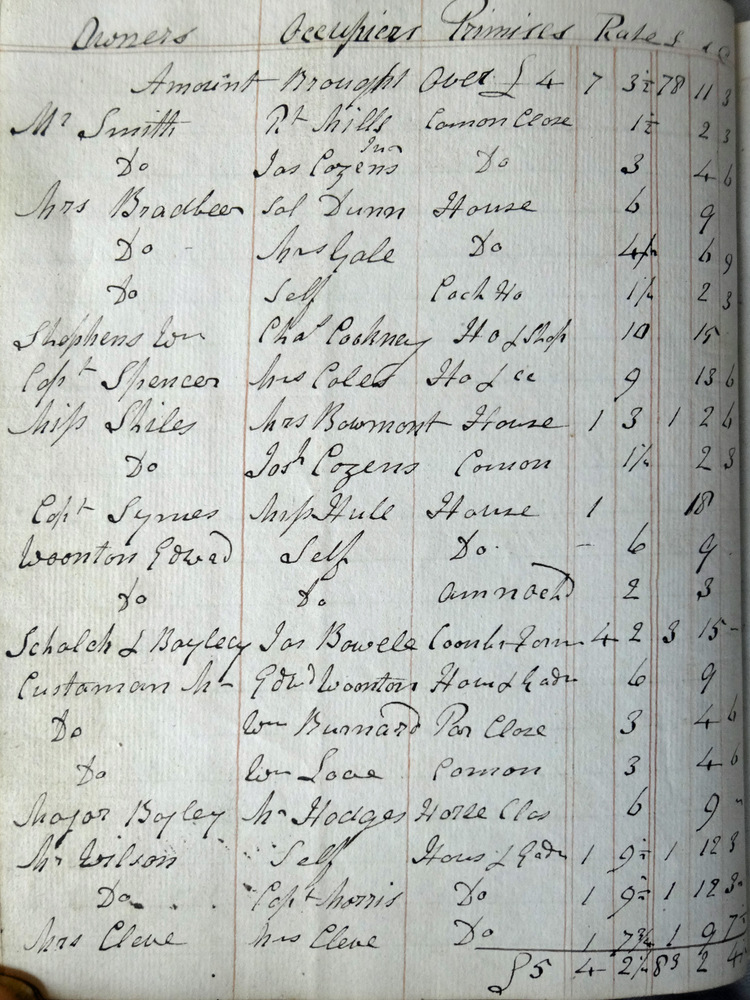 Owners Occupiers Primises Rate £ s d
Amount Brought Over £ 4 7 3½ 78 11 3
Mr Smith Rt Mills Comon Close 1½ 2 3
Do Jas Cozens Jnr Do 3 4 6
Mrs Bradbeer Sol Dunn House 6 9
Do Mrs Gale Do 4½ 6 9
Do Self Coch Ho 1½ 2 3
Stephens Wm Chas Cockney Ho & Shop 10 15
Capt Spencer Mrs Coles Ho & cc 9 13 6
Miss Stiles Mrs Bowmont House 1 3 1 2 6
Do Josh Cozens Comon 1½ 2 3
Capt Symes Miss Hull House 1 18
Woonton Edwad Self Do - 6 9
Do Do 2 3
Schalch & Bayley Jas Bowell Coombs Farm 4 2 3 15 -
Custaman Mr Edwd Woonton Hous & Gadn 6 9
Do Wm Burnard Par Close 3 4 6
Do Wm Comon 3 4 6
Major Bayley Mr Hodges Horse Clos 6 9 -
Mr Wilson Self Hous & Gadn 1 9½ 1 12 3
Do Capt Morris Do 1 9½ 1 12 3
Mrs Cleve Mrs Cleve Do 1 7¾ 1 9 7½
£5 4 2¼ 83 2 4